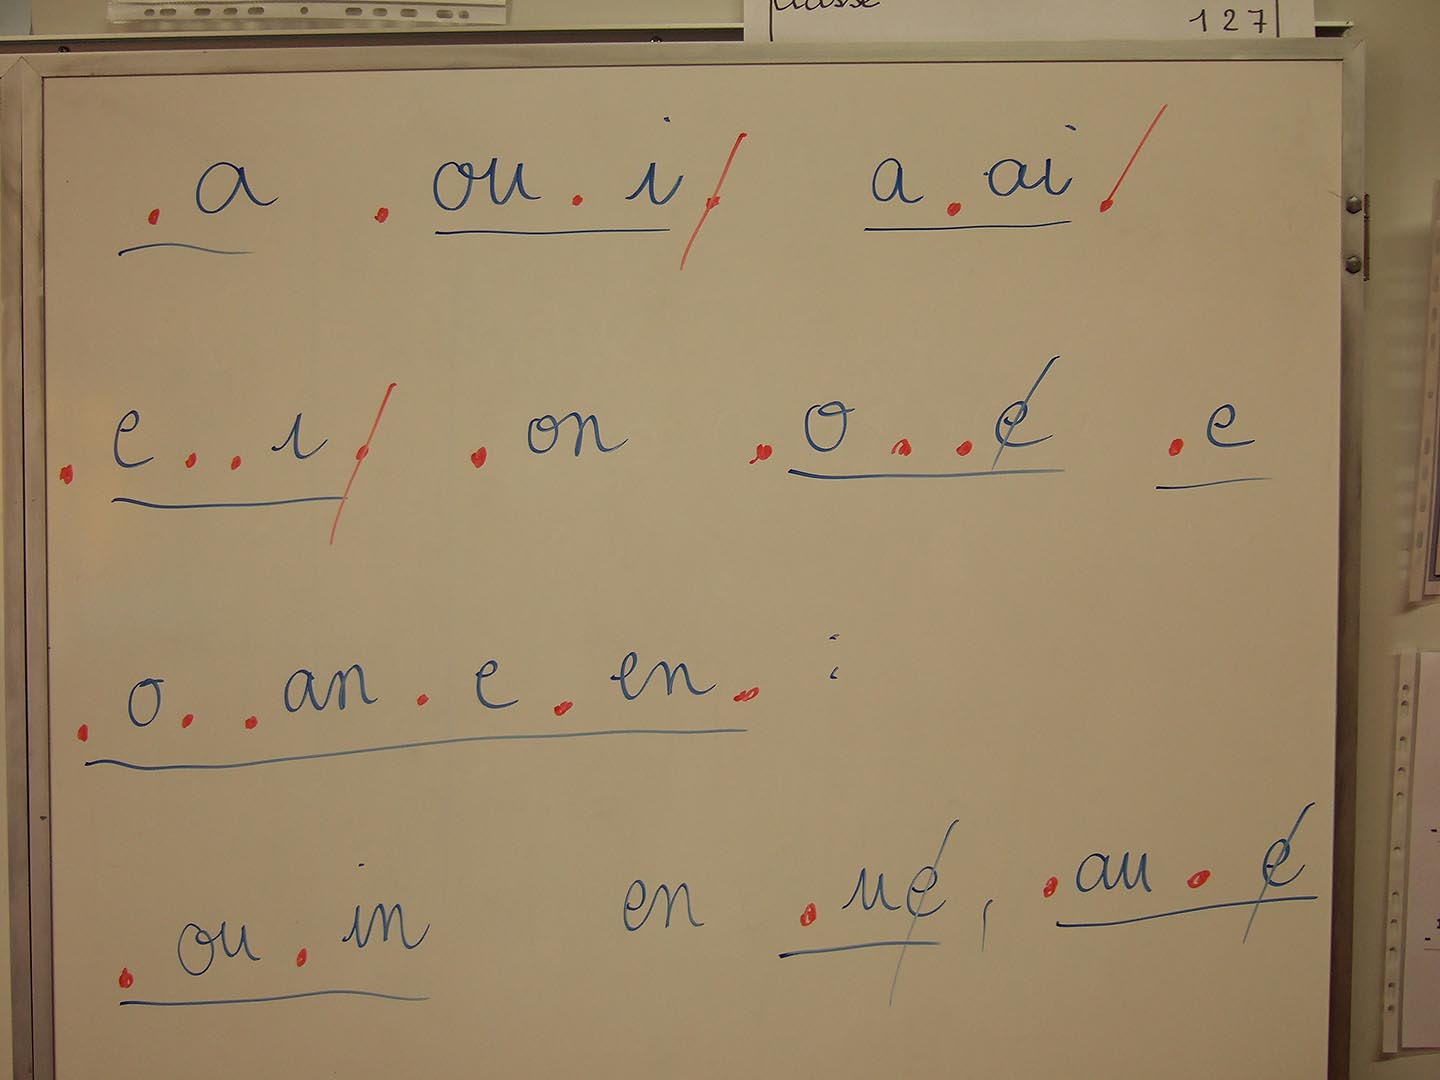 classe
127
. a . ou . i . a . ai .
. e . . i . . on . o . . e . e
. o . . an . e . en . :
. ou . in en . ue , . au . e